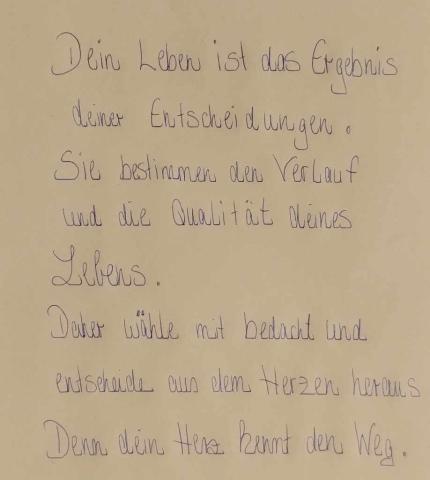 Dein Leben ist das Ergebnis
deiner Entscheidungen.
Sie bestimmen den Verlauf
und die Qualität deines
Lebens.
Daher wähle mit bedacht und
entscheide aus dem Herzen heraus
Denn dein Herz kennt den Weg.